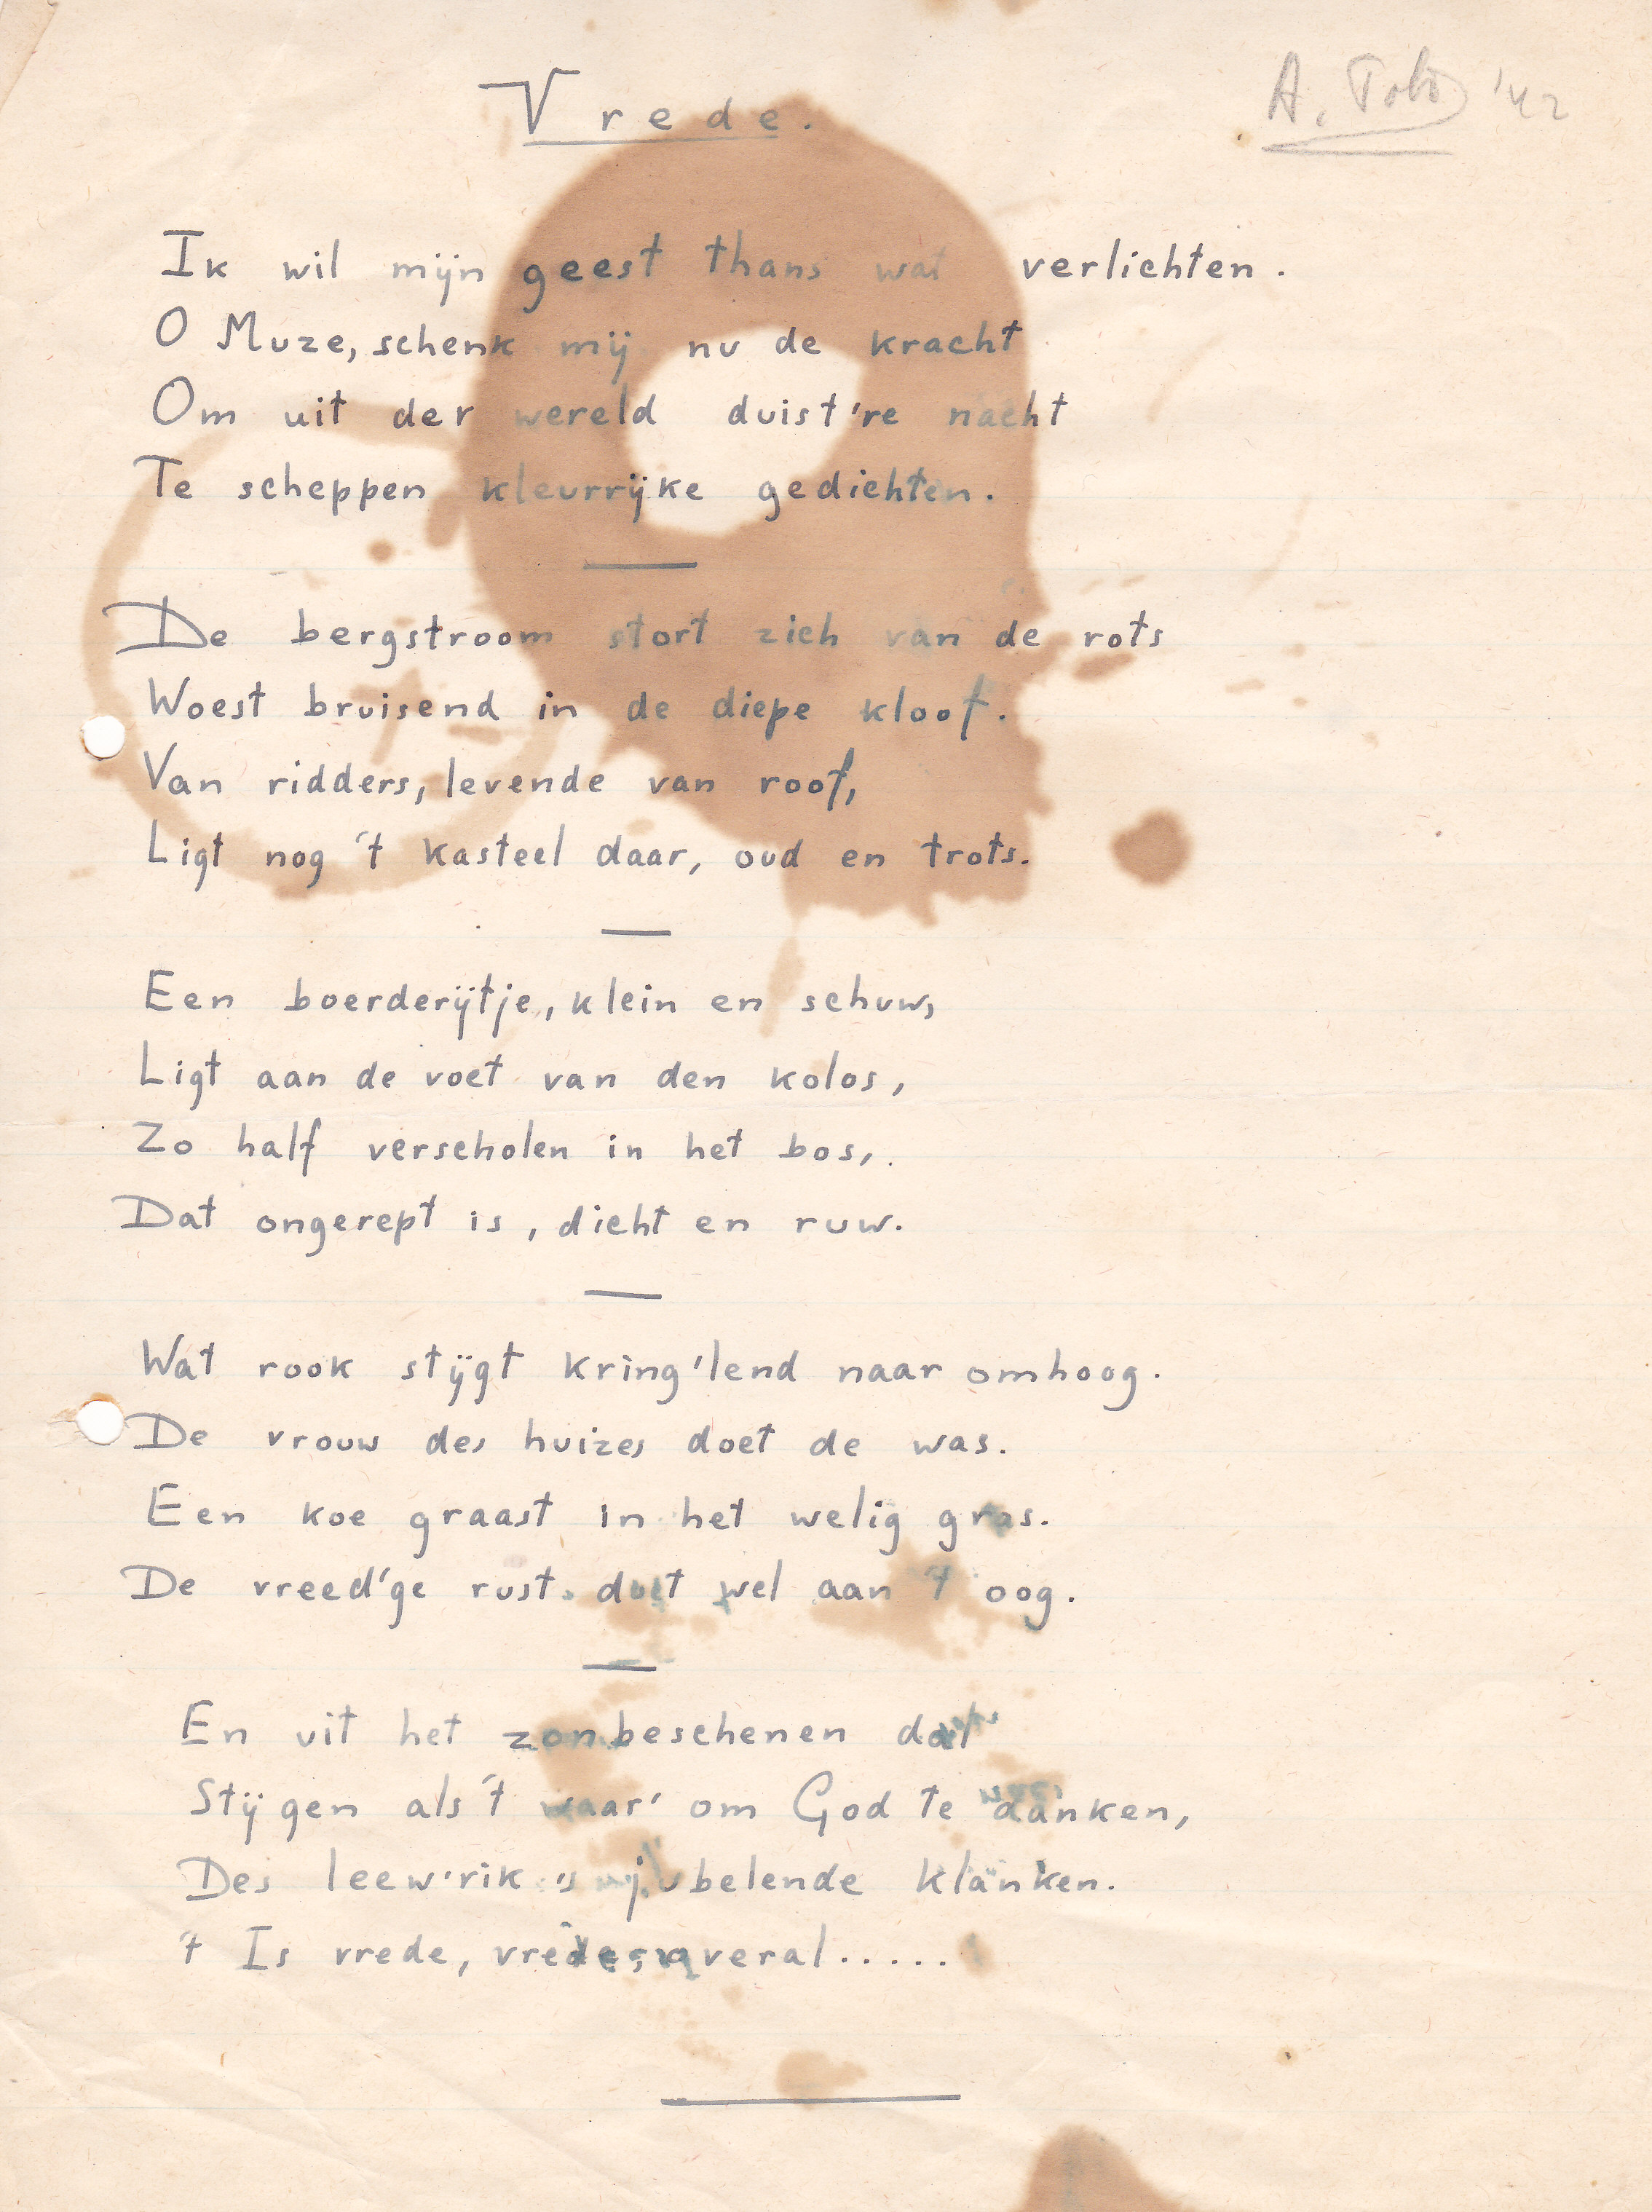 Vrede.
A. '42
Ik wil mijn geest thans wat verlichten.
O Muze, schenk mij nu de kracht
Om uit der wereld duist're nacht
Te scheppen kleurrijke gedichten.
De bergstroom stort zich van de rots
Woest bruisend in de diepe kloof.
Van ridders, levende van roof,
Ligt nog 't kasteel daar, oud en trots.
Een boerderijtje, klein en schuw,
Ligt aan de voet van den kolos,
Zo half verscholen in het bos,
Dat ongerept is, dicht en ruw.
Wat rook stijgt kring'lend naar omhoog.
De vrouw des huizes doet de was.
Een koe graast in het welig gras.
De vreed'ge rust doet wel aan 't oog.
En uit het zonbeschenen dal
Stijgen als 't waar' om God te danken,
Des leew'rik's jubelende klanken.
't Is vrede, vrede, overal.....